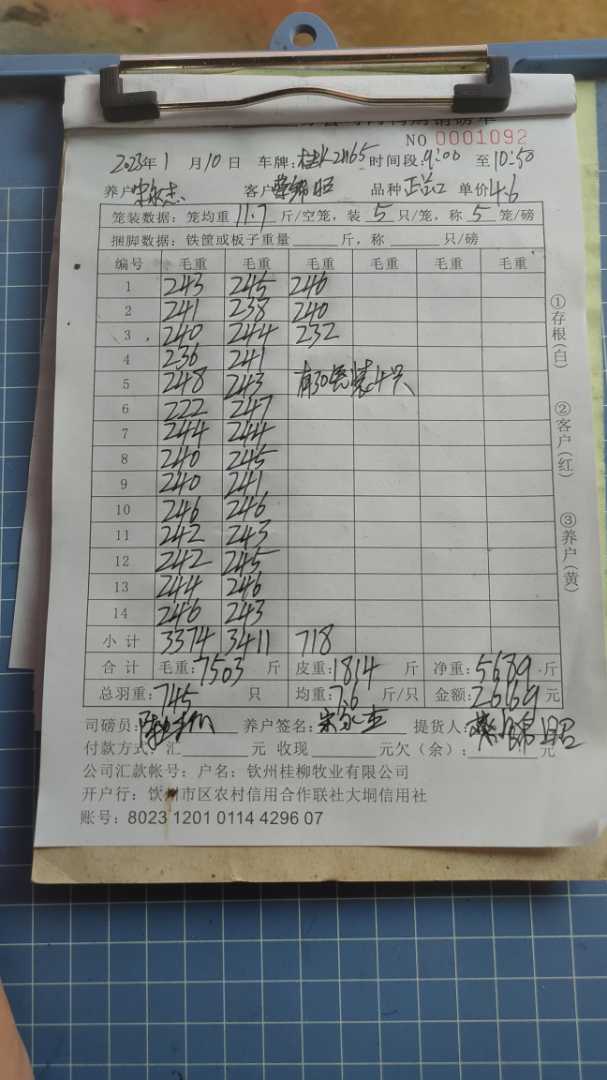 NO 0001092
2023年1月10日 车牌: 时间段:9:00 至10:50
养户 客户 品种 单价4.6
笼装数据:笼均重 11.7 斤/空笼,装 5 只/笼,称 5 笼/磅
捆脚数据:铁筐或板子重量 斤,称 只/磅
编号 毛重 毛重 毛重 毛重 毛重 毛重
1 243 245 246
2 241 238 240
3 240 244 232
4 236 241
5 248 243 有30笼装4只
6 222 247
7 244 244
8 240 245
9 240 241
10 246 246
11 242 243
12 242 245
13 244 246
14 246 243
小计 3374 3411 718
合计 毛重:7503 斤 皮重:1814 斤 净重:5689 斤
总羽重:745 只 均重:7.6 斤/只 金额:2669 元
司磅员: 养户签名: 提货人:
付款方式:汇 元 收现 元欠(余): 元
公司汇款帐号:户名:钦州桂柳牧业有限公司
开户行:钦州市区农村信用合作联社大垌信用社
账号:8023 1201 0114 4296 07
①存根(白)
②客户(红)
③养户(黄)